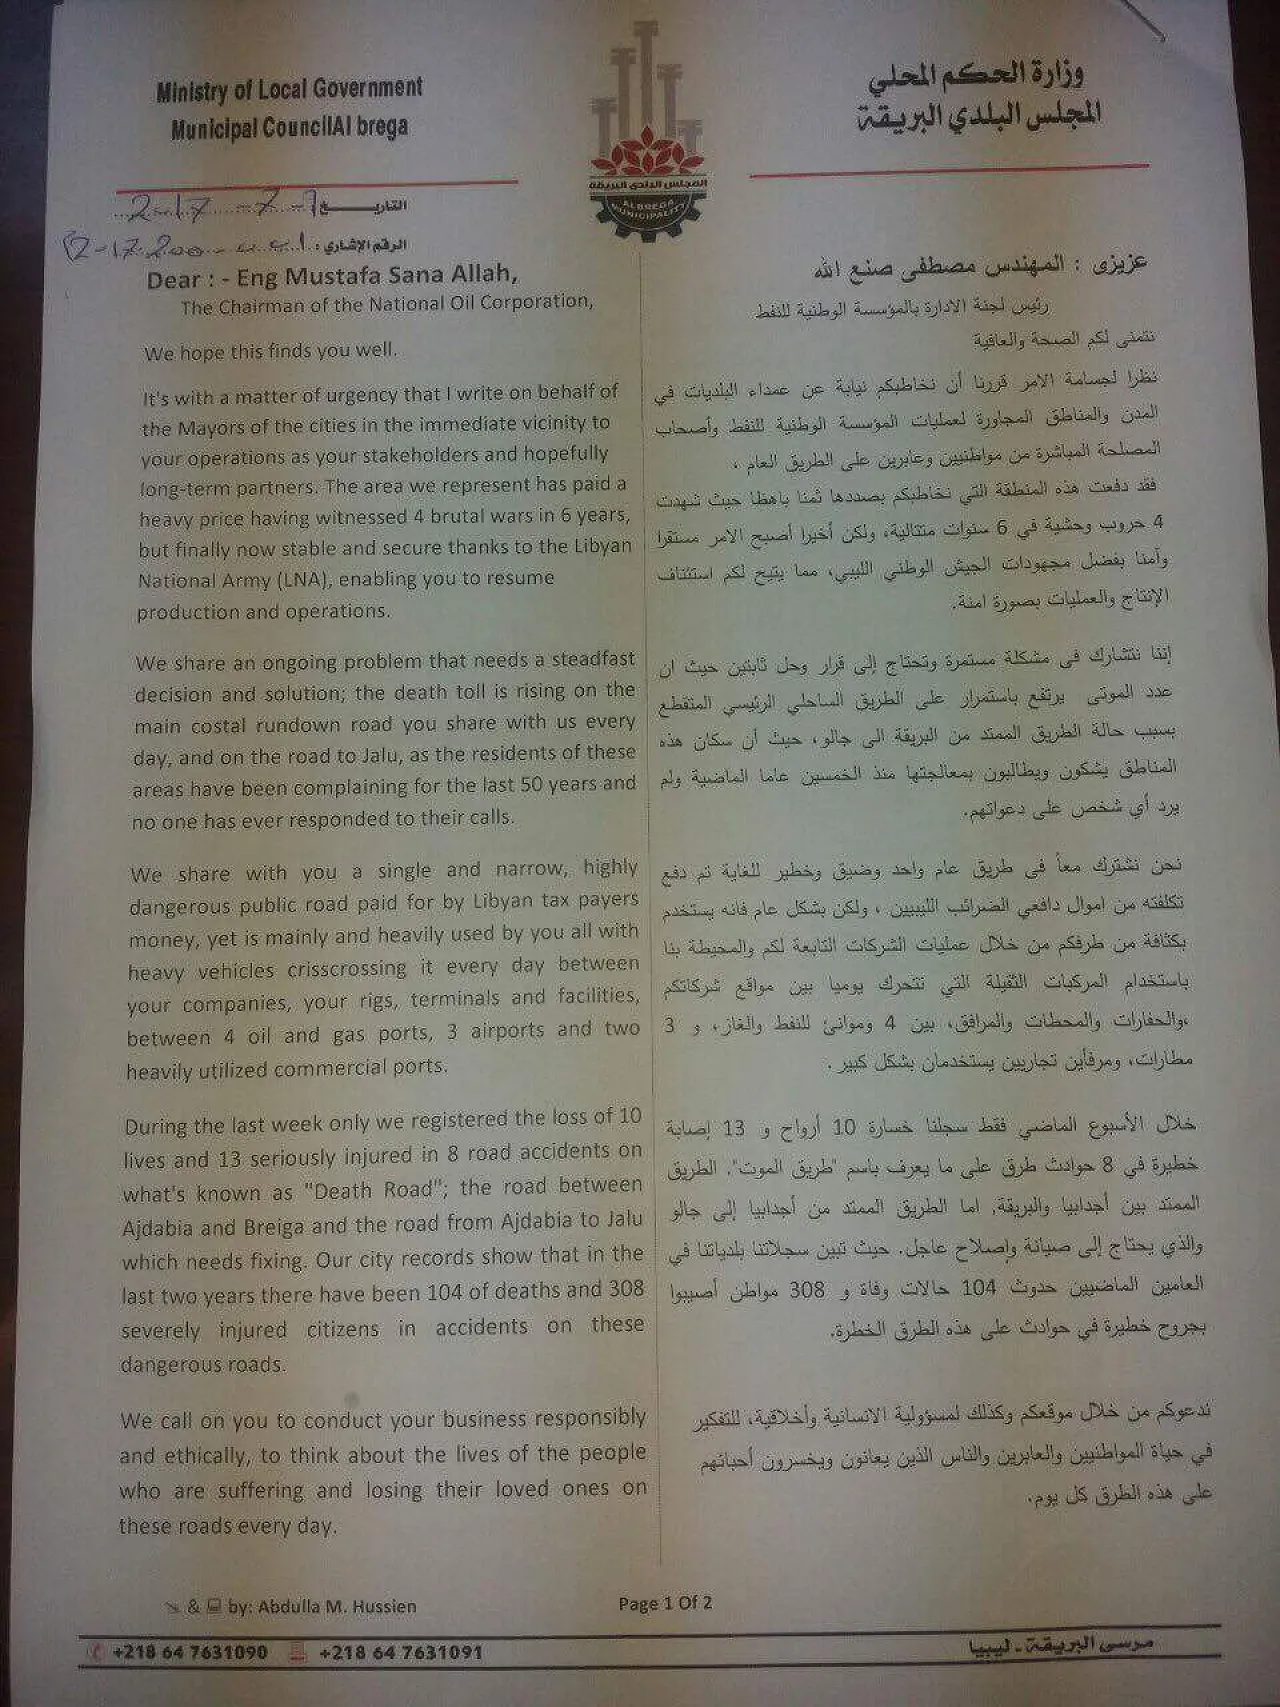 Ministry of Local Government
Municipal CouncilAl brega
وزارة الحكم المحلي
المجلس البلدي البريقة
المجلس البلدي البريقة
ALBREGA
MUNICIPALITY
التاريــــخ
الرقم الإشاري :
Dear : - Eng Mustafa Sana Allah,
The Chairman of the National Oil Corporation,
We hope this finds you well.
It's with a matter of urgency that I write on behalf of
the Mayors of the cities in the immediate vicinity to
your operations as your stakeholders and hopefully
long-term partners. The area we represent has paid a
heavy price having witnessed 4 brutal wars in 6 years,
but finally now stable and secure thanks to the Libyan
National Army (LNA), enabling you to resume
production and operations.
We share an ongoing problem that needs a steadfast
decision and solution; the death toll is rising on the
main costal rundown road you share with us every
day, and on the road to Jalu, as the residents of these
areas have been complaining for the last 50 years and
no one has ever responded to their calls.
We share with you a single and narrow, highly
dangerous public road paid for by Libyan tax payers
money, yet is mainly and heavily used by you all with
heavy vehicles crisscrossing it every day between
your companies, your rigs, terminals and facilities,
between 4 oil and gas ports, 3 airports and two
heavily utilized commercial ports.
During the last week only we registered the loss of 10
lives and 13 seriously injured in 8 road accidents on
what's known as "Death Road"; the road between
Ajdabia and Breiga and the road from Ajdabia to Jalu
which needs fixing. Our city records show that in the
last two years there have been 104 of deaths and 308
severely injured citizens in accidents on these
dangerous roads.
We call on you to conduct your business responsibly
and ethically, to think about the lives of the people
who are suffering and losing their loved ones on
these roads every day.
عزيزى : المهندس مصطفى صنع الله
رئيس لجنة الادارة بالمؤسسة الوطنية للنفط
نتمنى لكم الصحة والعافية
نظرا لجسامة الامر قررنا أن نخاطبكم نيابة عن عمداء البلديات في
المدن والمناطق المجاورة لعمليات المؤسسة الوطنية للنفط وأصحاب
المصلحة المباشرة من مواطنيين وعابرين على الطريق العام ،
فقد دفعت هذه المنطقة التي نخاطبكم بصددها ثمنا باهظا حيث شهدت
4 حروب وحشية في 6 سنوات متتالية، ولكن أخيرا أصبح الامر مستقرا
وآمنا بفضل مجهودات الجيش الوطني الليبي، مما يتيح لكم استئناف
الإنتاج والعمليات بصورة امنة.
إننا نتشارك فى مشكلة مستمرة وتحتاج إلى قرار وحل ثابتين حيث ان
عدد الموتى يرتفع باستمرار على الطريق الساحلي الرئيسي المتقطع
بسبب حالة الطريق الممتد من البريقة الى جالو، حيث أن سكان هذه
المناطق يشكون ويطالبون بمعالجتها منذ الخمسين عاما الماضية ولم
يرد أي شخص على دعواتهم.
نحن نشترك معاً فى طريق عام واحد وضيق وخطير للغاية تم دفع
تكلفته من اموال دافعي الضرائب الليبيين ، ولكن بشكل عام فانه يستخدم
بكثافة من طرفكم من خلال عمليات الشركات التابعة لكم والمحيطة بنا
باستخدام المركبات الثقيلة التي تتحرك يوميا بين مواقع شركاتكم
،والحفارات والمحطات والمرافق، بين 4 وموانئ للنفط والغاز، و 3
مطارات، ومرفأين تجاريين يستخدمان بشكل كبير .
خلال الأسبوع الماضي فقط سجلنا خسارة 10 أرواح و 13 إصابة
خطيرة في 8 حوادث طرق على ما يعرف باسم "طريق الموت". الطريق
الممتد بين أجدابيا والبريقة, اما الطريق الممتد من أجدابيا إلى جالو
والذي يحتاج إلى صيانة وإصلاح عاجل. حيث تبين سجلاتنا بلدياتنا في
العامين الماضيين حدوث 104 حالات وفاة و 308 مواطن أصيبوا
بجروح خطيرة في حوادث على هذه الطرق الخطرة.
ندعوكم من خلال موقعكم وكذلك لمسؤولية الانسانية وأخلاقية، للتفكير
في حياة المواطنيين والعابرين والناس الذين يعانون ويخسرون أحبائهم
على هذه الطرق كل يوم.
& by: Abdulla M. Hussien
Page 1 Of 2
+218 64 7631090 +218 64 7631091
مرسى البريقة - ليبيا